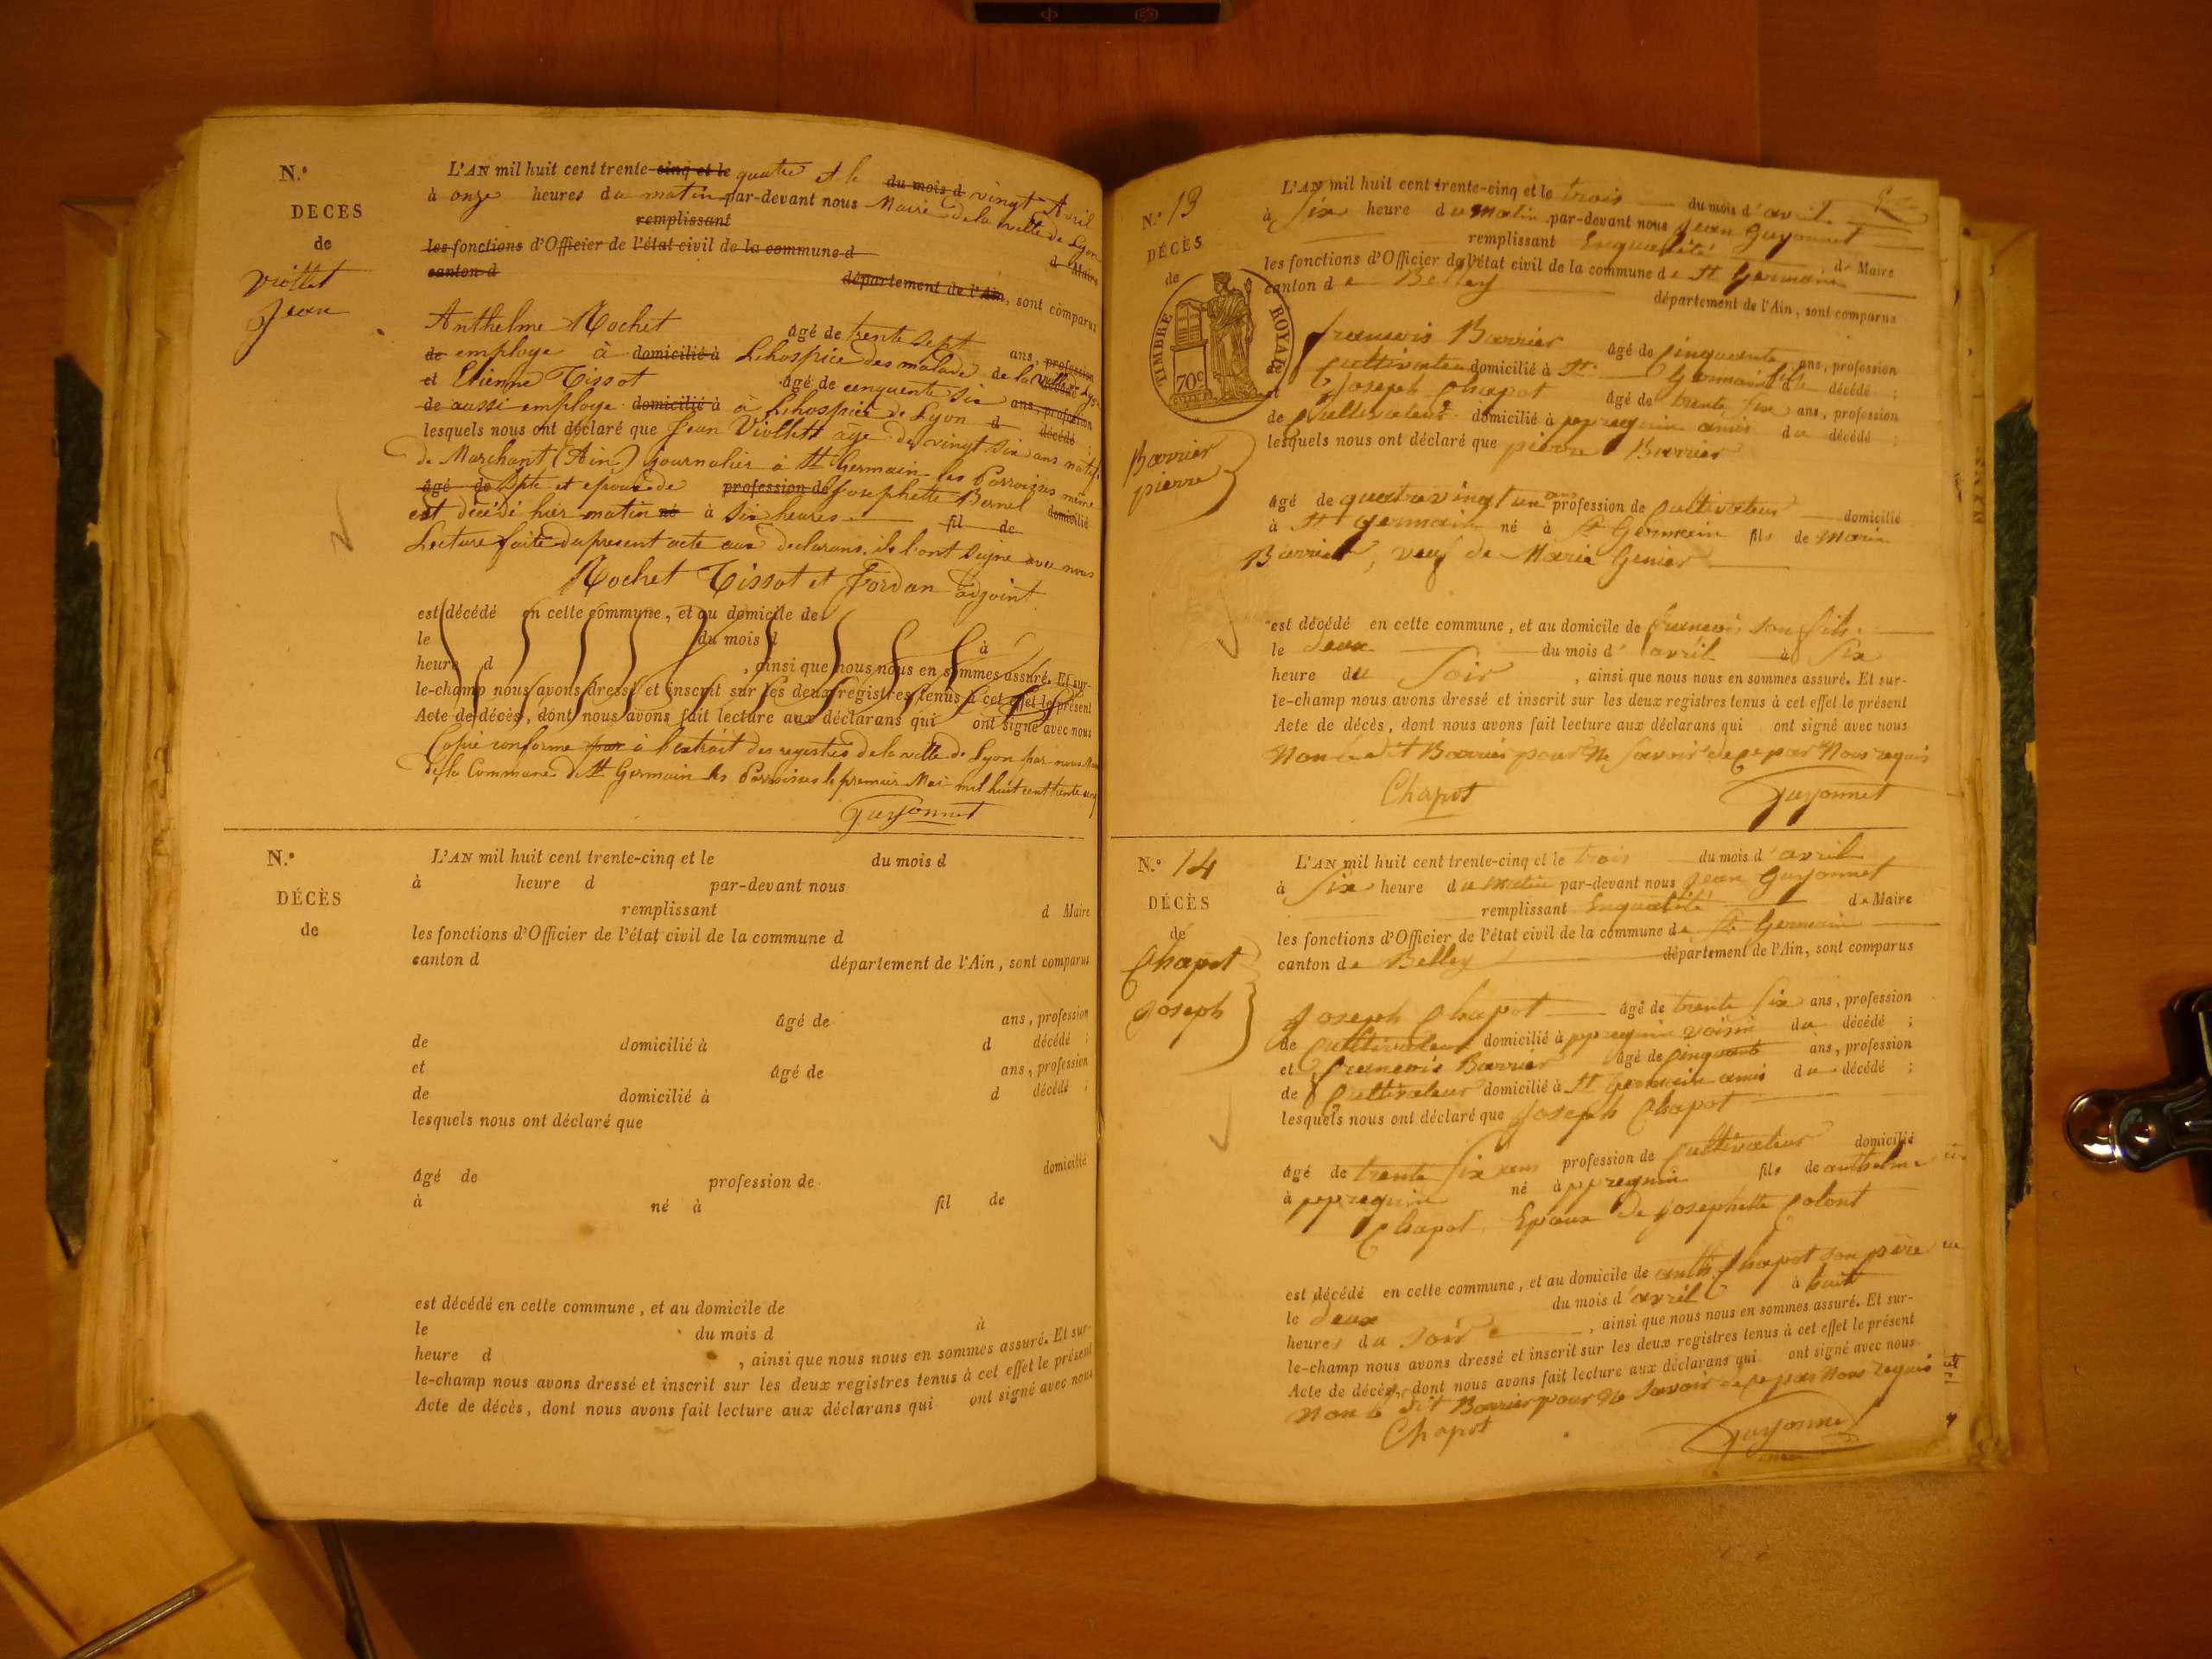 N.º
DECÈS
de
Viollet
Jean
L'AN mil huit cent trente-cinq et le quatre et le du mois d vingt Avril
à onze heures du matin par-devant nous Maire de la ville de Lyon
remplissant d Maire
les fonctions d'Officier de l'état civil de la commune d
canton d département de l'Ain, sont comparus
Anthelme Rochet âgé de trente sept ans, profession
de employe à domicilié à Lhospice des malade de la ville de Lyon décédé
et Etienne Tissot âgé de cenquente six ans, profession
de aussi employe domicilié à à Lhospice de Lyon d décédé ;
lesquels nous ont déclaré que Jean Viollett age de vingt six ans natif
de Marchant (Ain) journalier à St Germain les Parroisses même
âgé de dpte et epoux de profession de Josephette Bernel domicilié
est décédé hier matin né à six heures fil de
Lecture faite du present acte aux declarans, ils l'ont signe avec nous
Rochet Tissot et Jordan adjoint
est décédé en cette commune, et au domicile de
le du mois d à
heure d , ainsi que nous nous en sommes assuré. Et sur-
le-champ nous avons dressé et inscrit sur les deux registres tenus à cet effet le présent
Acte de décès, dont nous avons fait lecture aux déclarans qui ont signé avec nous
Copie conforme par à l'extrait des regestres de la ville de Lyon par nous Maire
de la Commune de St Germain les Parroisses le premier Mai mil huit cent trente cinq
Guyonnet
N.º
DÉCÈS
de
L'AN mil huit cent trente-cinq et le du mois d
à heure d par-devant nous
remplissant d Maire
les fonctions d'Officier de l'état civil de la commune d
canton d département de l'Ain, sont comparus
âgé de ans, profession
de domicilié à d décédé ;
et âgé de ans, profession
de domicilié à d décédé ;
lesquels nous ont déclaré que
âgé de profession de domicilié
à né à fil de
est décédé en cette commune, et au domicile de
le du mois d à
heure d , ainsi que nous nous en sommes assuré. Et sur-
le-champ nous avons dressé et inscrit sur les deux registres tenus à cet effet le présent
Acte de décès, dont nous avons fait lecture aux déclarans qui ont signé avec nous
N.º 13
DÉCÈS
de
TIMBRE ROYAL
70c
Barrier
pierre
L'AN mil huit cent trente-cinq et le trois du mois d'avril
à six heure du matin par-devant nous Jean Guyonnet
remplissant Enqualité de Maire
les fonctions d'Officier de l'état civil de la commune de St Germain
canton de Belley département de l'Ain, sont comparus
francois Barrier âgé de cinquante ans, profession
cultivateur domicilié à St Germain fils décédé ;
et Joseph Chapot âgé de trente six ans, profession
de Cultivateur domicilié à appregnin amis du décédé ;
lesquels nous ont déclaré que pierre Barrier
âgé de quatrevingt un ans profession de Cultivateur domicilié
à St germain né à St Germain fils de Marin
Barrier, veuf de Marie Genier
est décédé en cette commune, et au domicile de francois son fils
le deux du mois d'avril à Six
heure du Soir , ainsi que nous nous en sommes assuré. Et sur-
le-champ nous avons dressé et inscrit sur les deux registres tenus à cet effet le présent
Acte de décès, dont nous avons fait lecture aux déclarans qui ont signé avec nous
Non le dit Barrier pour Ne Savoir de ce par Nous requis
Chapot Guyonnet
N.º 14
DÉCÈS
de
Chapot
Joseph
L'AN mil huit cent trente-cinq et le trois du mois d'avril
à Six heure du matin par-devant nous Jean Guyonnet
remplissant Enqualité de Maire
les fonctions d'Officier de l'état civil de la commune de St Germain
canton de Belley département de l'Ain, sont comparus
Joseph Chapot âgé de trente six ans, profession
de Cultivateur domicilié à appregnin voisin du décédé ;
et francois Barrier âgé de cinquante ans, profession
de Cultivateur domicilié à St Germain amis du décédé ;
lesquels nous ont déclaré que Joseph Chapot
âgé de trente six ans profession de Cultivateur domicilié
à appregnin né à appregnin fils de anthelme
Chapot Epoux de Josephette Colont
est décédé en cette commune, et au domicile de anth Chapot son père
le deux du mois d'avril à huit
heures du soir , ainsi que nous nous en sommes assuré. Et sur-
le-champ nous avons dressé et inscrit sur les deux registres tenus à cet effet le présent
Acte de décès, dont nous avons fait lecture aux déclarans qui ont signé avec nous
Non le dit Barrier pour Ne Savoir de ce par Nous requis
Chapot Guyonnet